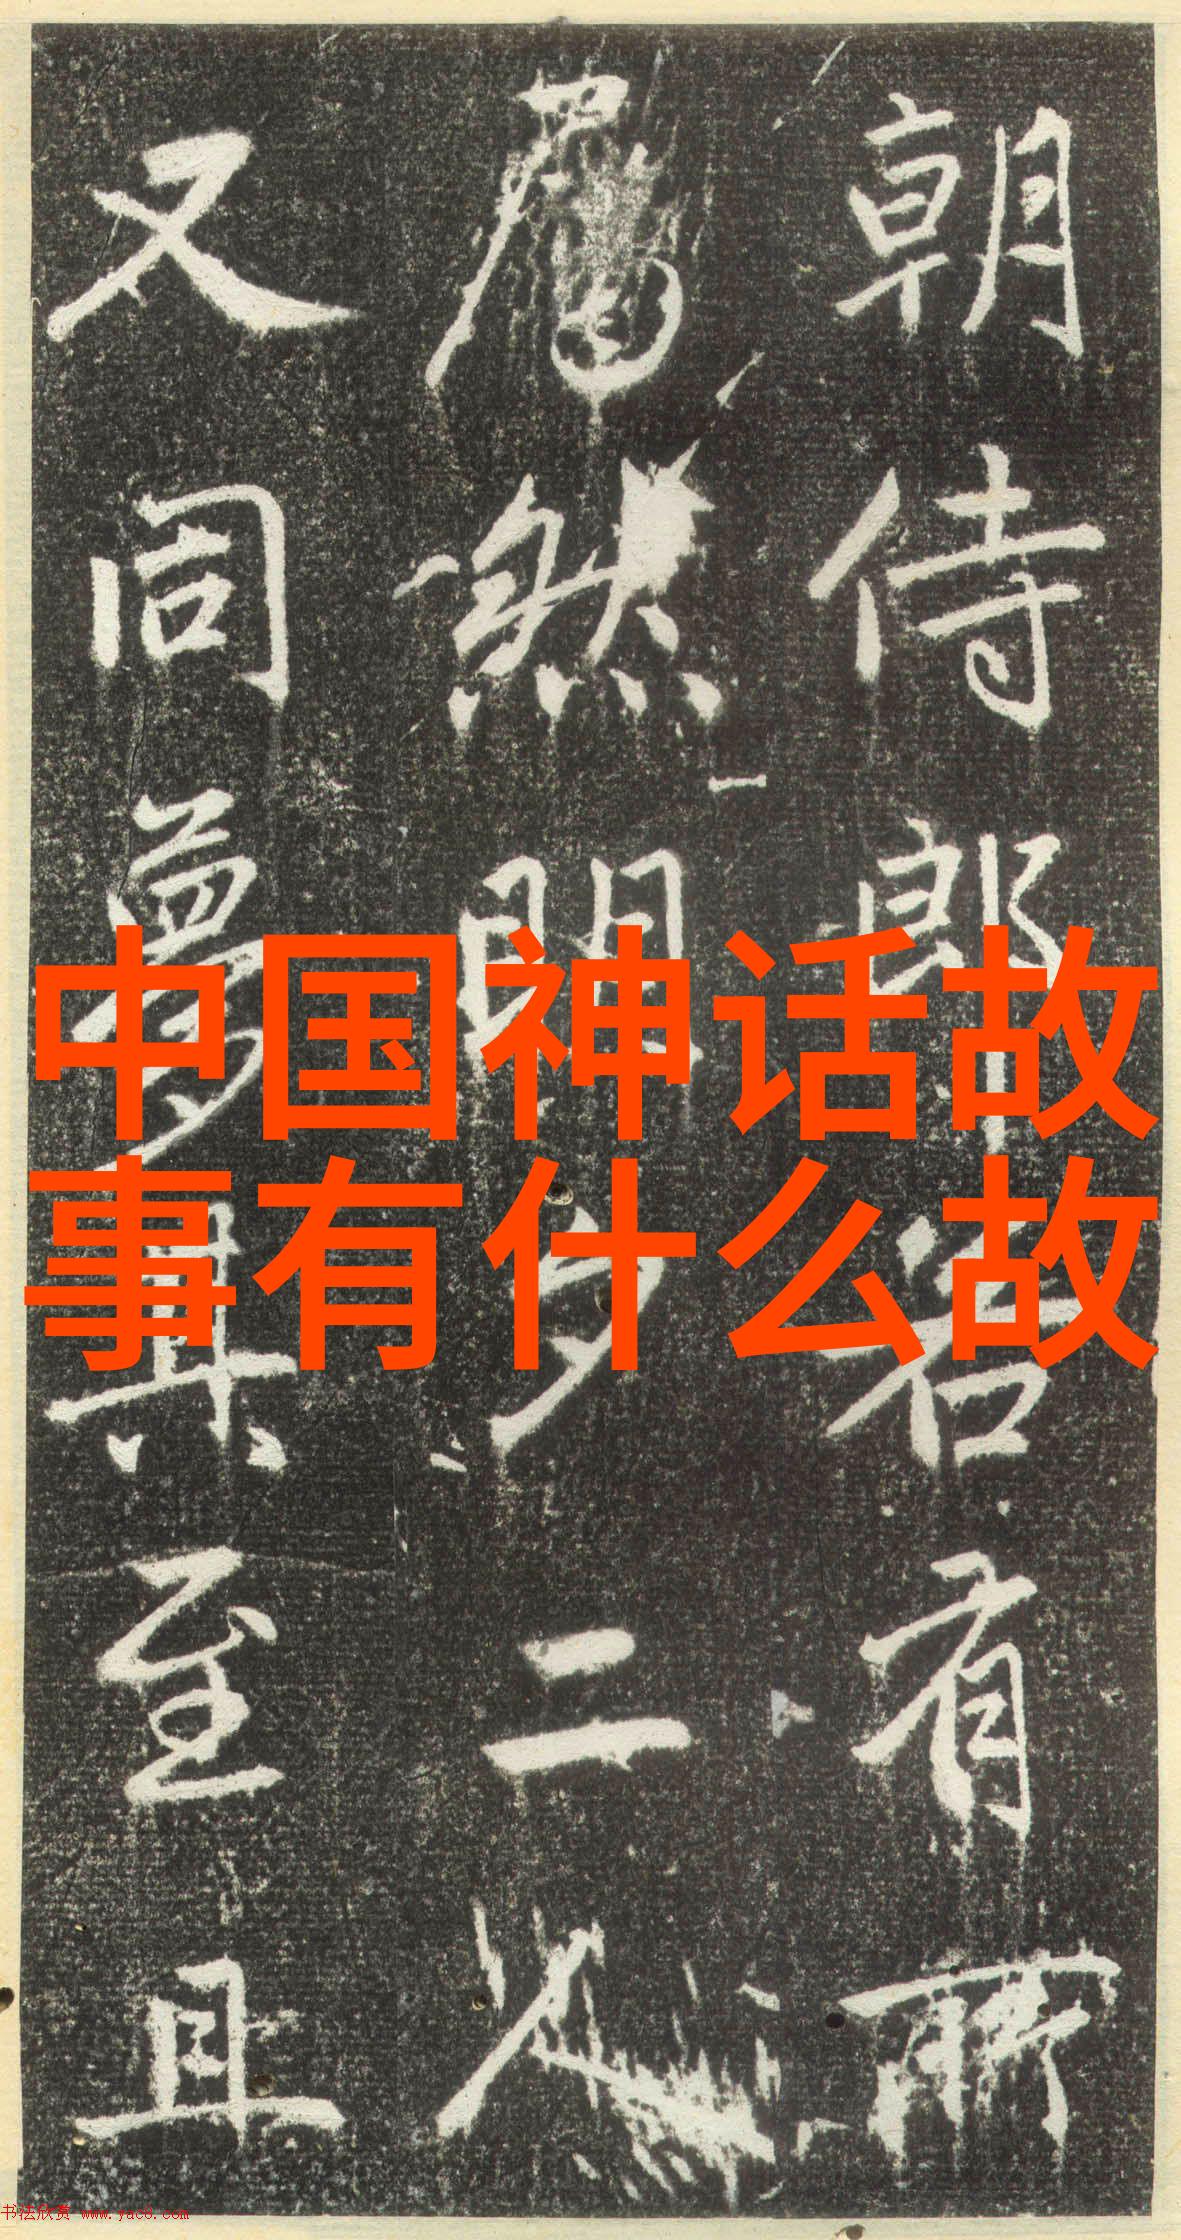 中国神话故
事有什么故
朝侍郎
有所
然明
二人
又同梦
其至且
书法欣赏 www.yac8.com